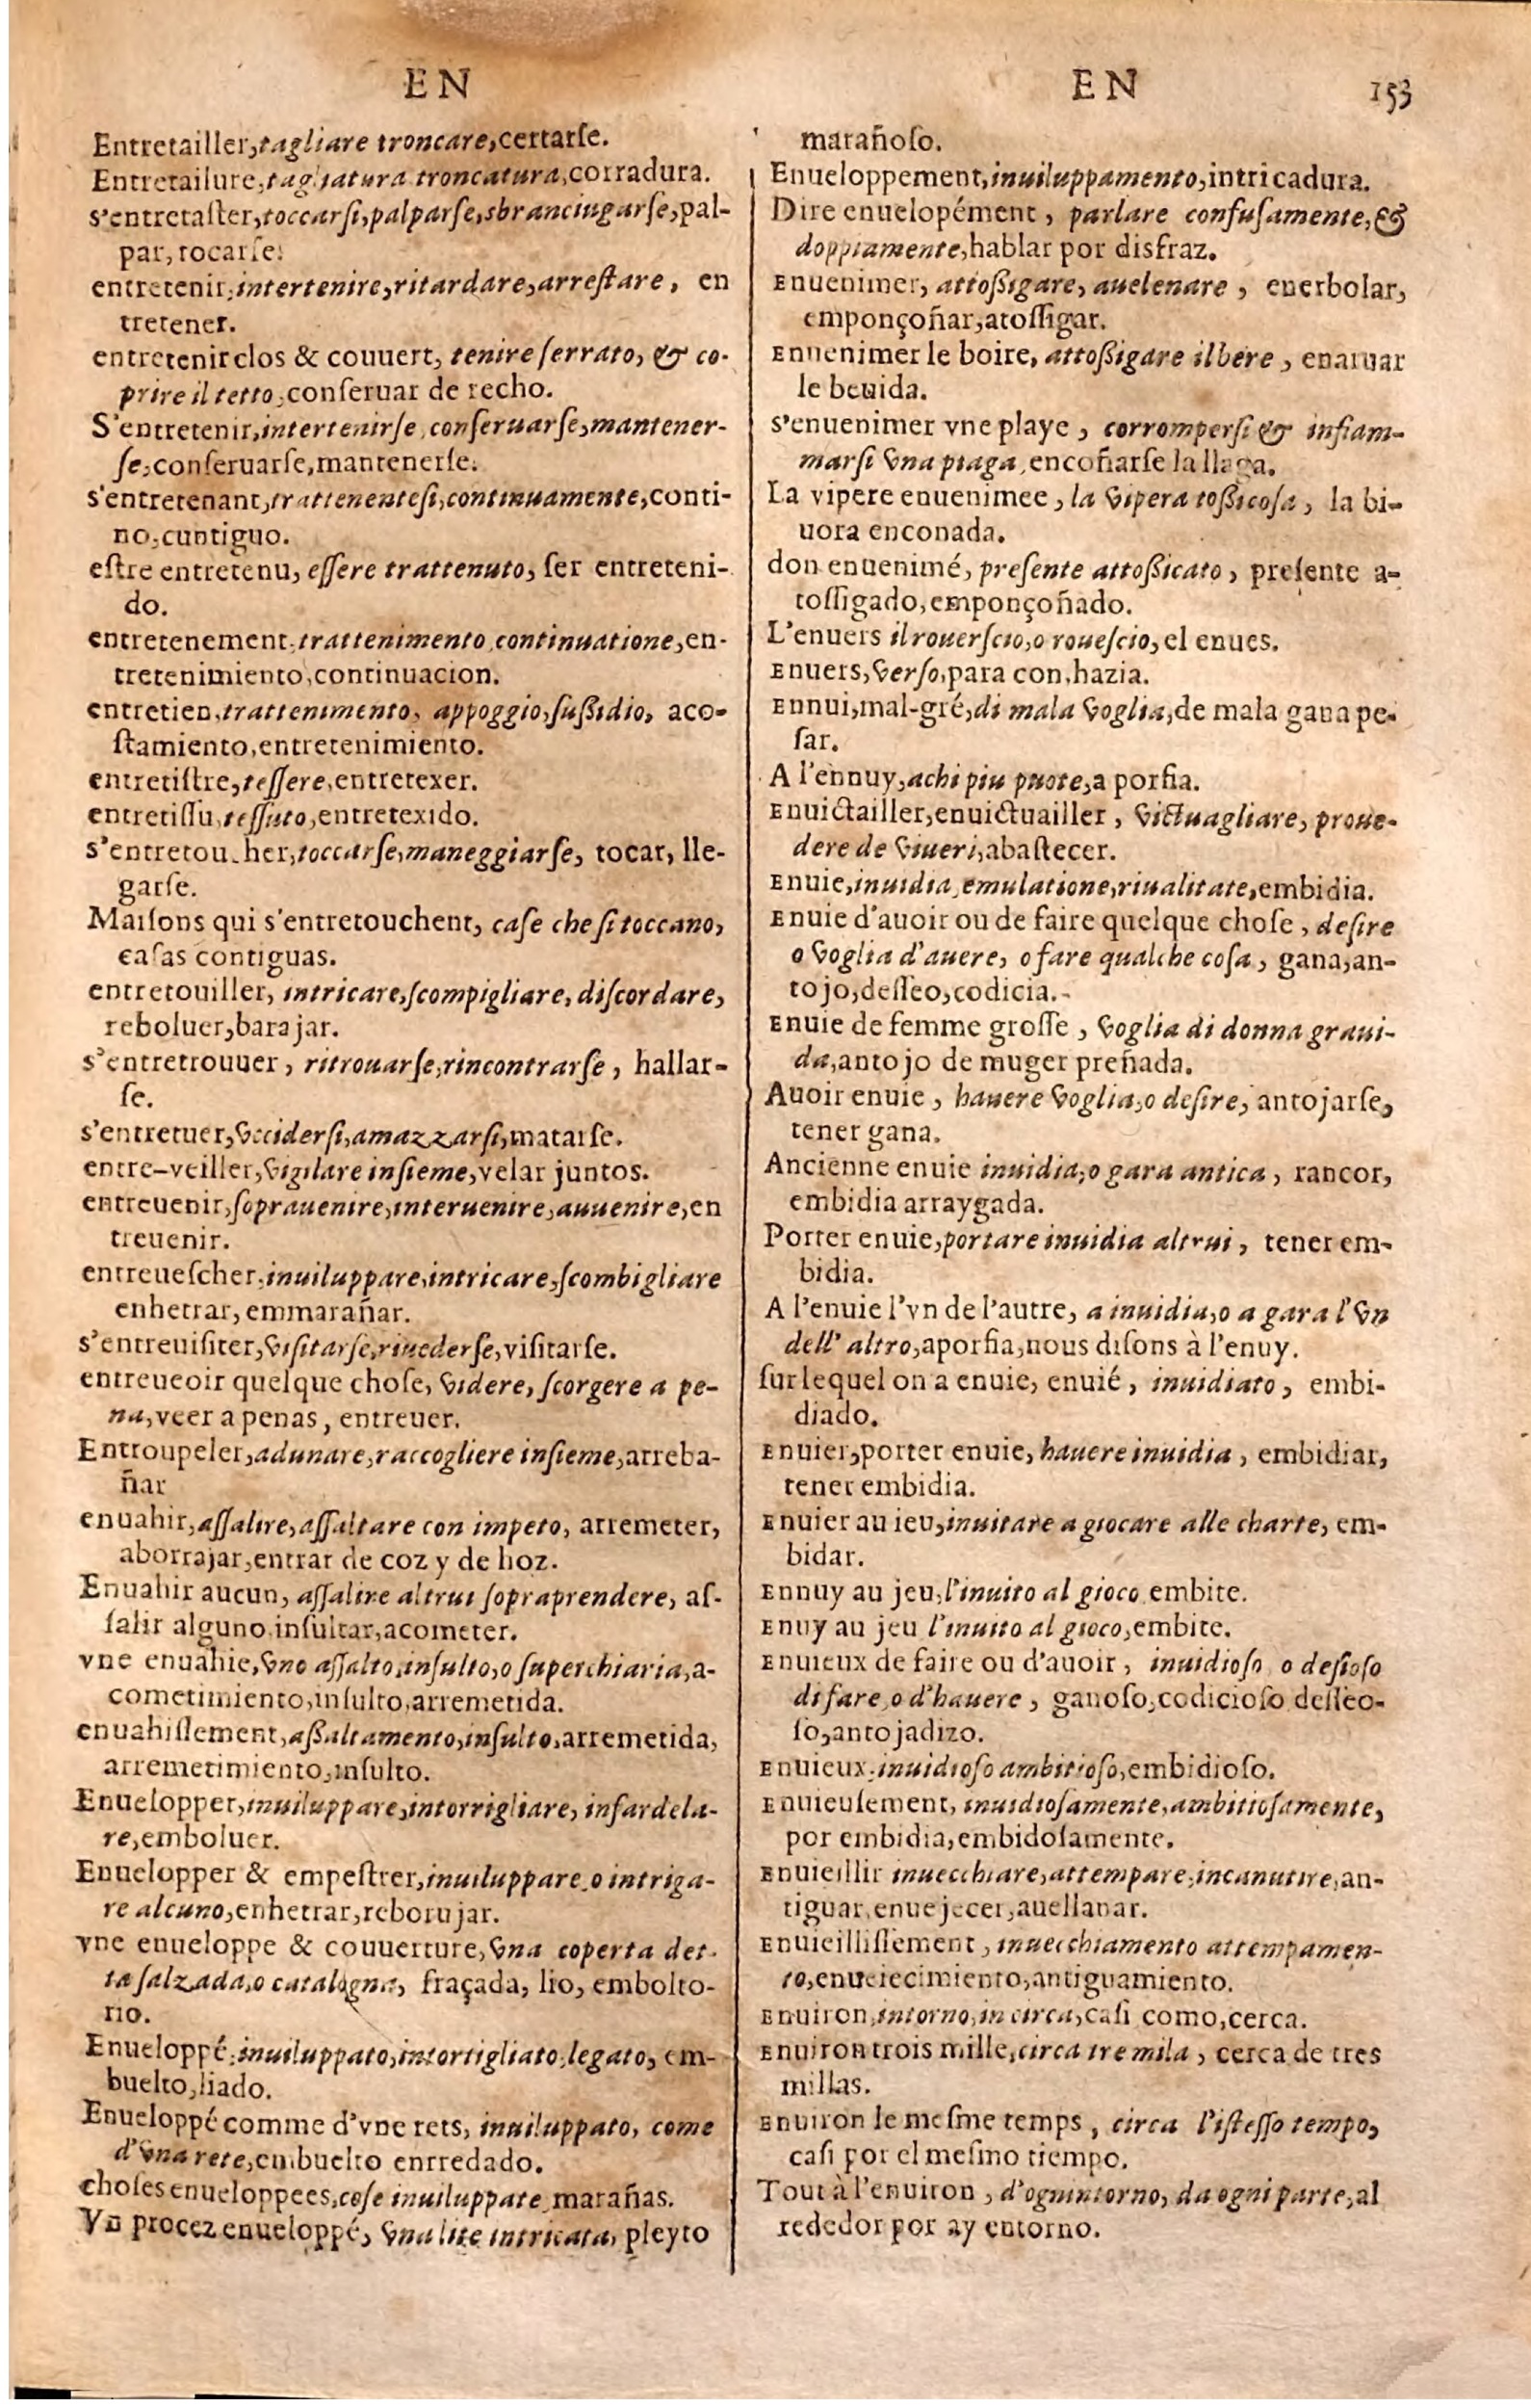 EN
Entretailler, tagliare troncare, certarſe.
Entretailure, tagliatura troncatura, corradura.
s'entretaſter, toccarſi, palparſe, sbranciugarſe, pal-
par, tocarſe.
entretenir, intertenire, ritardare, arreſtare, en
tretener.
entretenir clos & couuert, tenire ſerrato, & co-
prire il tetto, conſeruar de recho.
S'entretenir, intertenirſe, conſeruarſe, mantener-
ſe, conſeruarſe, mantenerſe.
s'entretenant, trattenenteſi, continuamente, conti-
no, cuntiguo.
eſtre entretenu, eſſere trattenuto, ſer entreteni-
do.
entretenement, trattenimento, continuatione, en-
tretenimiento, continuacion.
entretien, trattenimento, appoggio, ſußidio, aco-
ſtamiento, entretenimiento.
entretiſtre, teſſere, entretexer.
entretiſſu, teſſuto, entretexido.
s'entretou her, toccarſe, maneggiarſe, tocar, lle-
garſe.
Maiſons qui s'entretouchent, caſe che ſi toccano,
caſas contiguas.
entretouiller, intricare, ſcompigliare, diſcordare,
reboluer, barajar.
s'entretrouuer, ritrouarſe, rincontrarſe, hallar-
ſe.
s'entretuer, vcciderſi, amazzarſi, matarſe.
entre-veiller, vigilare inſieme, velar juntos.
entreuenir, ſoprauenire, interuenire, auuenire, en
treuenir.
entreueſcher, inuiluppare, intricare, ſcombigliare
enhetrar, emmarañar.
s'entreuiſiter, viſitarſe, riuederſe, viſitarſe.
entreueoir quelque choſe, videre, ſcorgere a pe-
na, veer a penas, entreuer.
Entroupeler, adunare, raccogliere inſieme, arreba-
ñar
enuahir, aſſalire, aſſaltare con impeto, arremeter,
aborrajar, entrar de coz y de hoz.
Enuahir aucun, aſſalire altrui ſopraprendere, aſ-
ſalir alguno, inſultar, acometer.
vne enuahie, vno aſſalto, inſulto, o ſuperchiaria, a-
cometimiento, inſulto, arremetida.
enuahiſſement, aßaltamento, inſulto, arremetida,
arremetimiento, inſulto.
Enuelopper, inuiluppare, intorrigliare, infardela-
re, emboluer.
Enuelopper & empeſtrer, inuiluppare o intriga-
re alcuno, enhetrar, reborujar.
vne enueloppe & couuerture, vna coperta det-
ta ſalzada, o catalogna, fraçada, lio, embolto-
rio.
Enueloppé, inuiluppato, intortigliato, legato, em-
buelto, liado.
Enueloppé comme d'vne rets, inuiluppato, come
d'vna rete, embuelto enrredado.
choſes enueloppees, coſe inuiluppate, marañas.
Vn procez enueloppé, vna lite intricata, pleyto
EN 153
marañoſo.
Enueloppement, inuiluppamento, intricadura.
Dire enuelopément, parlare confuſamente, &
doppiamente, hablar por disfraz.
Enuenimer, attoßigare, auelenare, enerbolar,
emponçoñar, atoſſigar.
Enuenimer le boire, attoßigare il bere, enaruar
le beuida.
s'enuenimer vne playe, corromperſi & infiam-
marſi vna piaga, enconarſe la llaga.
La vipere enuenimee, la vipera toßicoſa, la bi-
uora enconada.
don enuenimé, preſente attoßicato, preſente a-
toſſigado, emponçoñado.
L'enuers il rouerſcio, o roueſcio, el enues.
Enuers, verſo, para con, hazia.
Ennui, mal-gré, di mala voglia, de mala gana pe-
ſar.
A l'ennuy, a chi piu puote, a porfia.
Enuictailler, enuictuailler, victuagliare, proue-
dere de viueri, abaſtecer.
Enuie, inuidia, emulatione, riualitate, embidia.
Enuie d'auoir ou de faire quelque choſe, deſire
o voglia d'auere, o fare qualche coſa, gana, an-
tojo, deſſeo, codicia.
Enuie de femme groſſe, voglia di donna graui-
da, antojo de muger preñada.
Auoir enuie, hauere voglia, o deſire, antojarſe,
tener gana.
Ancienne enuie inuidia, o gara antica, rancor,
embidia arraygada.
Porter enuie, portare inuidia altrui, tener em-
bidia.
A l'enuie l'vn de l'autre, a inuidia, o a gara l'vn
dell' altro, aporfia, nous diſons à l'enuy.
ſur lequel on a enuie, enuié, inuidiato, embi-
diado.
Enuier, porter enuie, hauere inuidia, embidiar,
tener embidia.
Enuier au ieu, inuitare a giocare alle charte, em-
bidar.
Ennuy au jeu, l'inuito al gioco embite.
Enuy au jeu l'inuito al gioco, embite.
Enuieux de faire ou d'auoir, inuidioſo o deſioſo
di fare, o d'hauere, ganoſo, codicioſo deſſeo-
ſo, antojadizo.
Enuieux, inuidioſo ambitioſo, embidioſo.
Enuieuſement, inuidioſamente, ambitioſamente,
por embidia, embidoſamente.
Enuieillir inuecchiare, attempare, incanutire, an-
tiguar, enuejecer, auellanar.
Enuieilliſſement, inuecchiamento attempamen-
to, enueiecimiento, antiguamiento.
Enuiron, intorno, in circa, caſi como, cerca.
Enuiron trois mille, circa tre mila, cerca de tres
millas.
Enuiron le meſme temps, circa l'iſteſſo tempo,
caſi por el meſmo tiempo.
Tout à l'enuiron, d'ognintorno, da ogni parte, al
rededor por ay entorno.